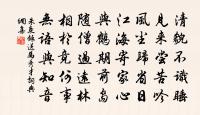 清貌不識睡
見來嘗苦吟
風塵歸省日
江海寄家心
與鶴期前島
隨僧過遠林
相於竟何事
無語與知音
朱慶餘送馬秀才詞典
網集